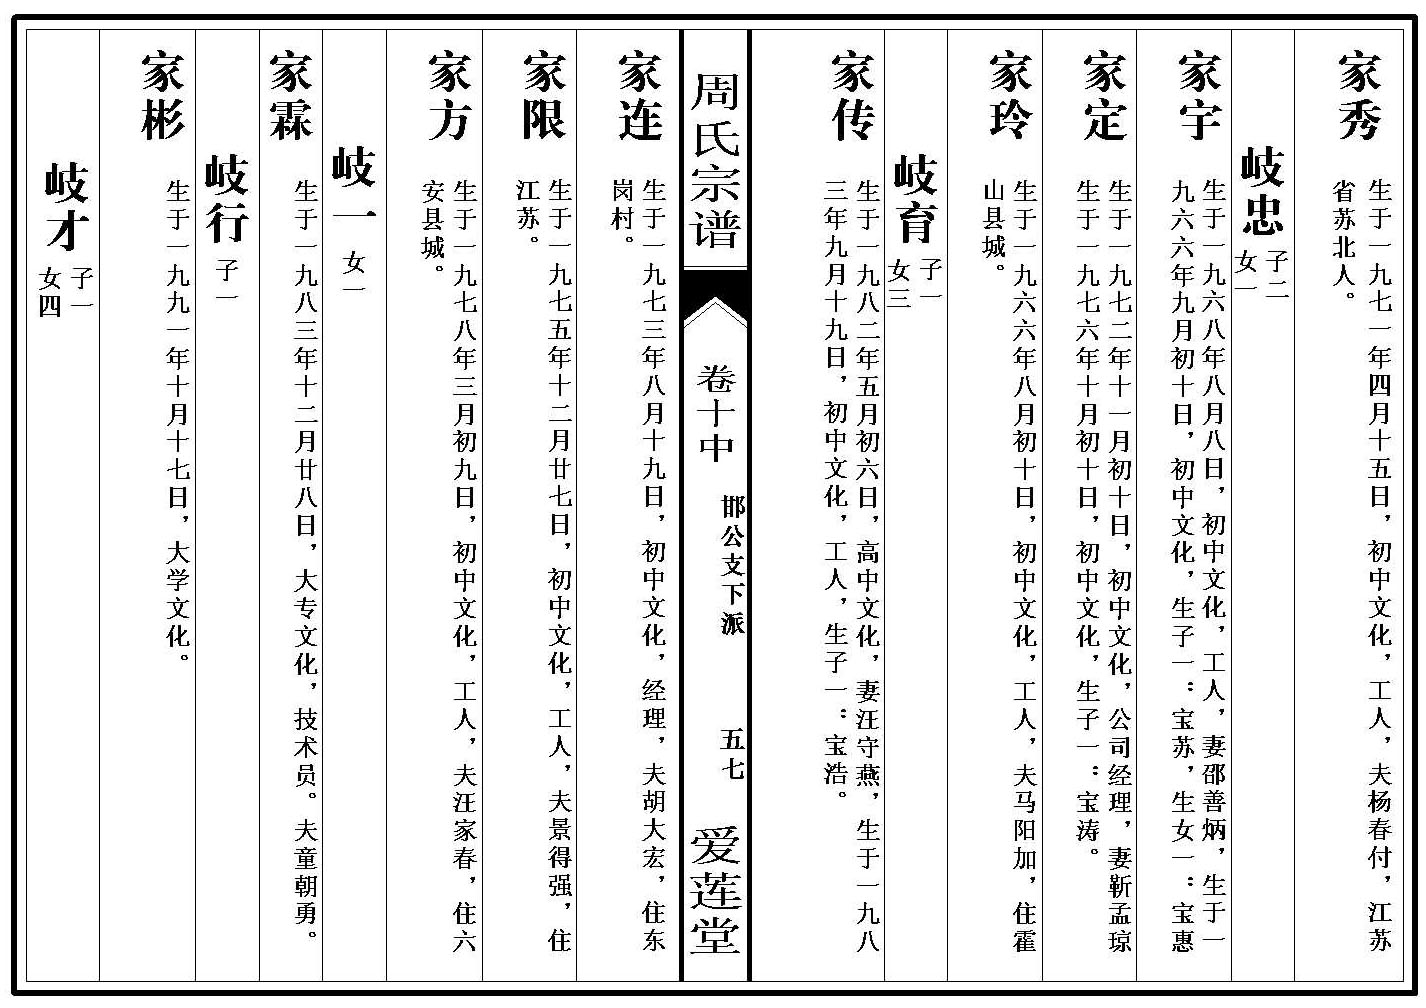 家秀
生于一九七一年四月十五日，初中文化，工人，夫杨春付，江苏
省苏北人。
岐忠
子二
女一
家宇
生于一九六八年八月八日，初中文化，工人，妻邵善炳，生于一
九六六年九月初十日，初中文化，生子一：宝苏，生女一：宝惠
家定
生于一九七二年十一月初十日，初中文化，公司经理，妻靳孟琼
生于一九七六年十月初十日，初中文化，生子一：宝涛。
家玲
生于一九六六年八月初十日，初中文化，工人，夫马阳加，住霍
山县城。
岐育
子一
女三
家传
生于一九八二年五月初六日，高中文化，妻汪守燕，生于一九八
三年九月十九日，初中文化，工人，生子一：宝浩。
周氏宗谱
卷十中
邯公支下派
五七
爱莲堂
家连
生于一九七三年八月十九日，初中文化，经理，夫胡大宏，住东
岗村。
家限
生于一九七五年十二月廿七日，初中文化，工人，夫景得强，住
江苏。
家方
生于一九七八年三月初九日，初中文化，工人，夫汪家春，住六
安县城。
岐一
女一
家霖
生于一九八三年十二月廿八日，大专文化，技术员。夫童朝勇。
岐行
子一
家彬
生于一九九一年十月十七日，大学文化。
岐才
子一
女四